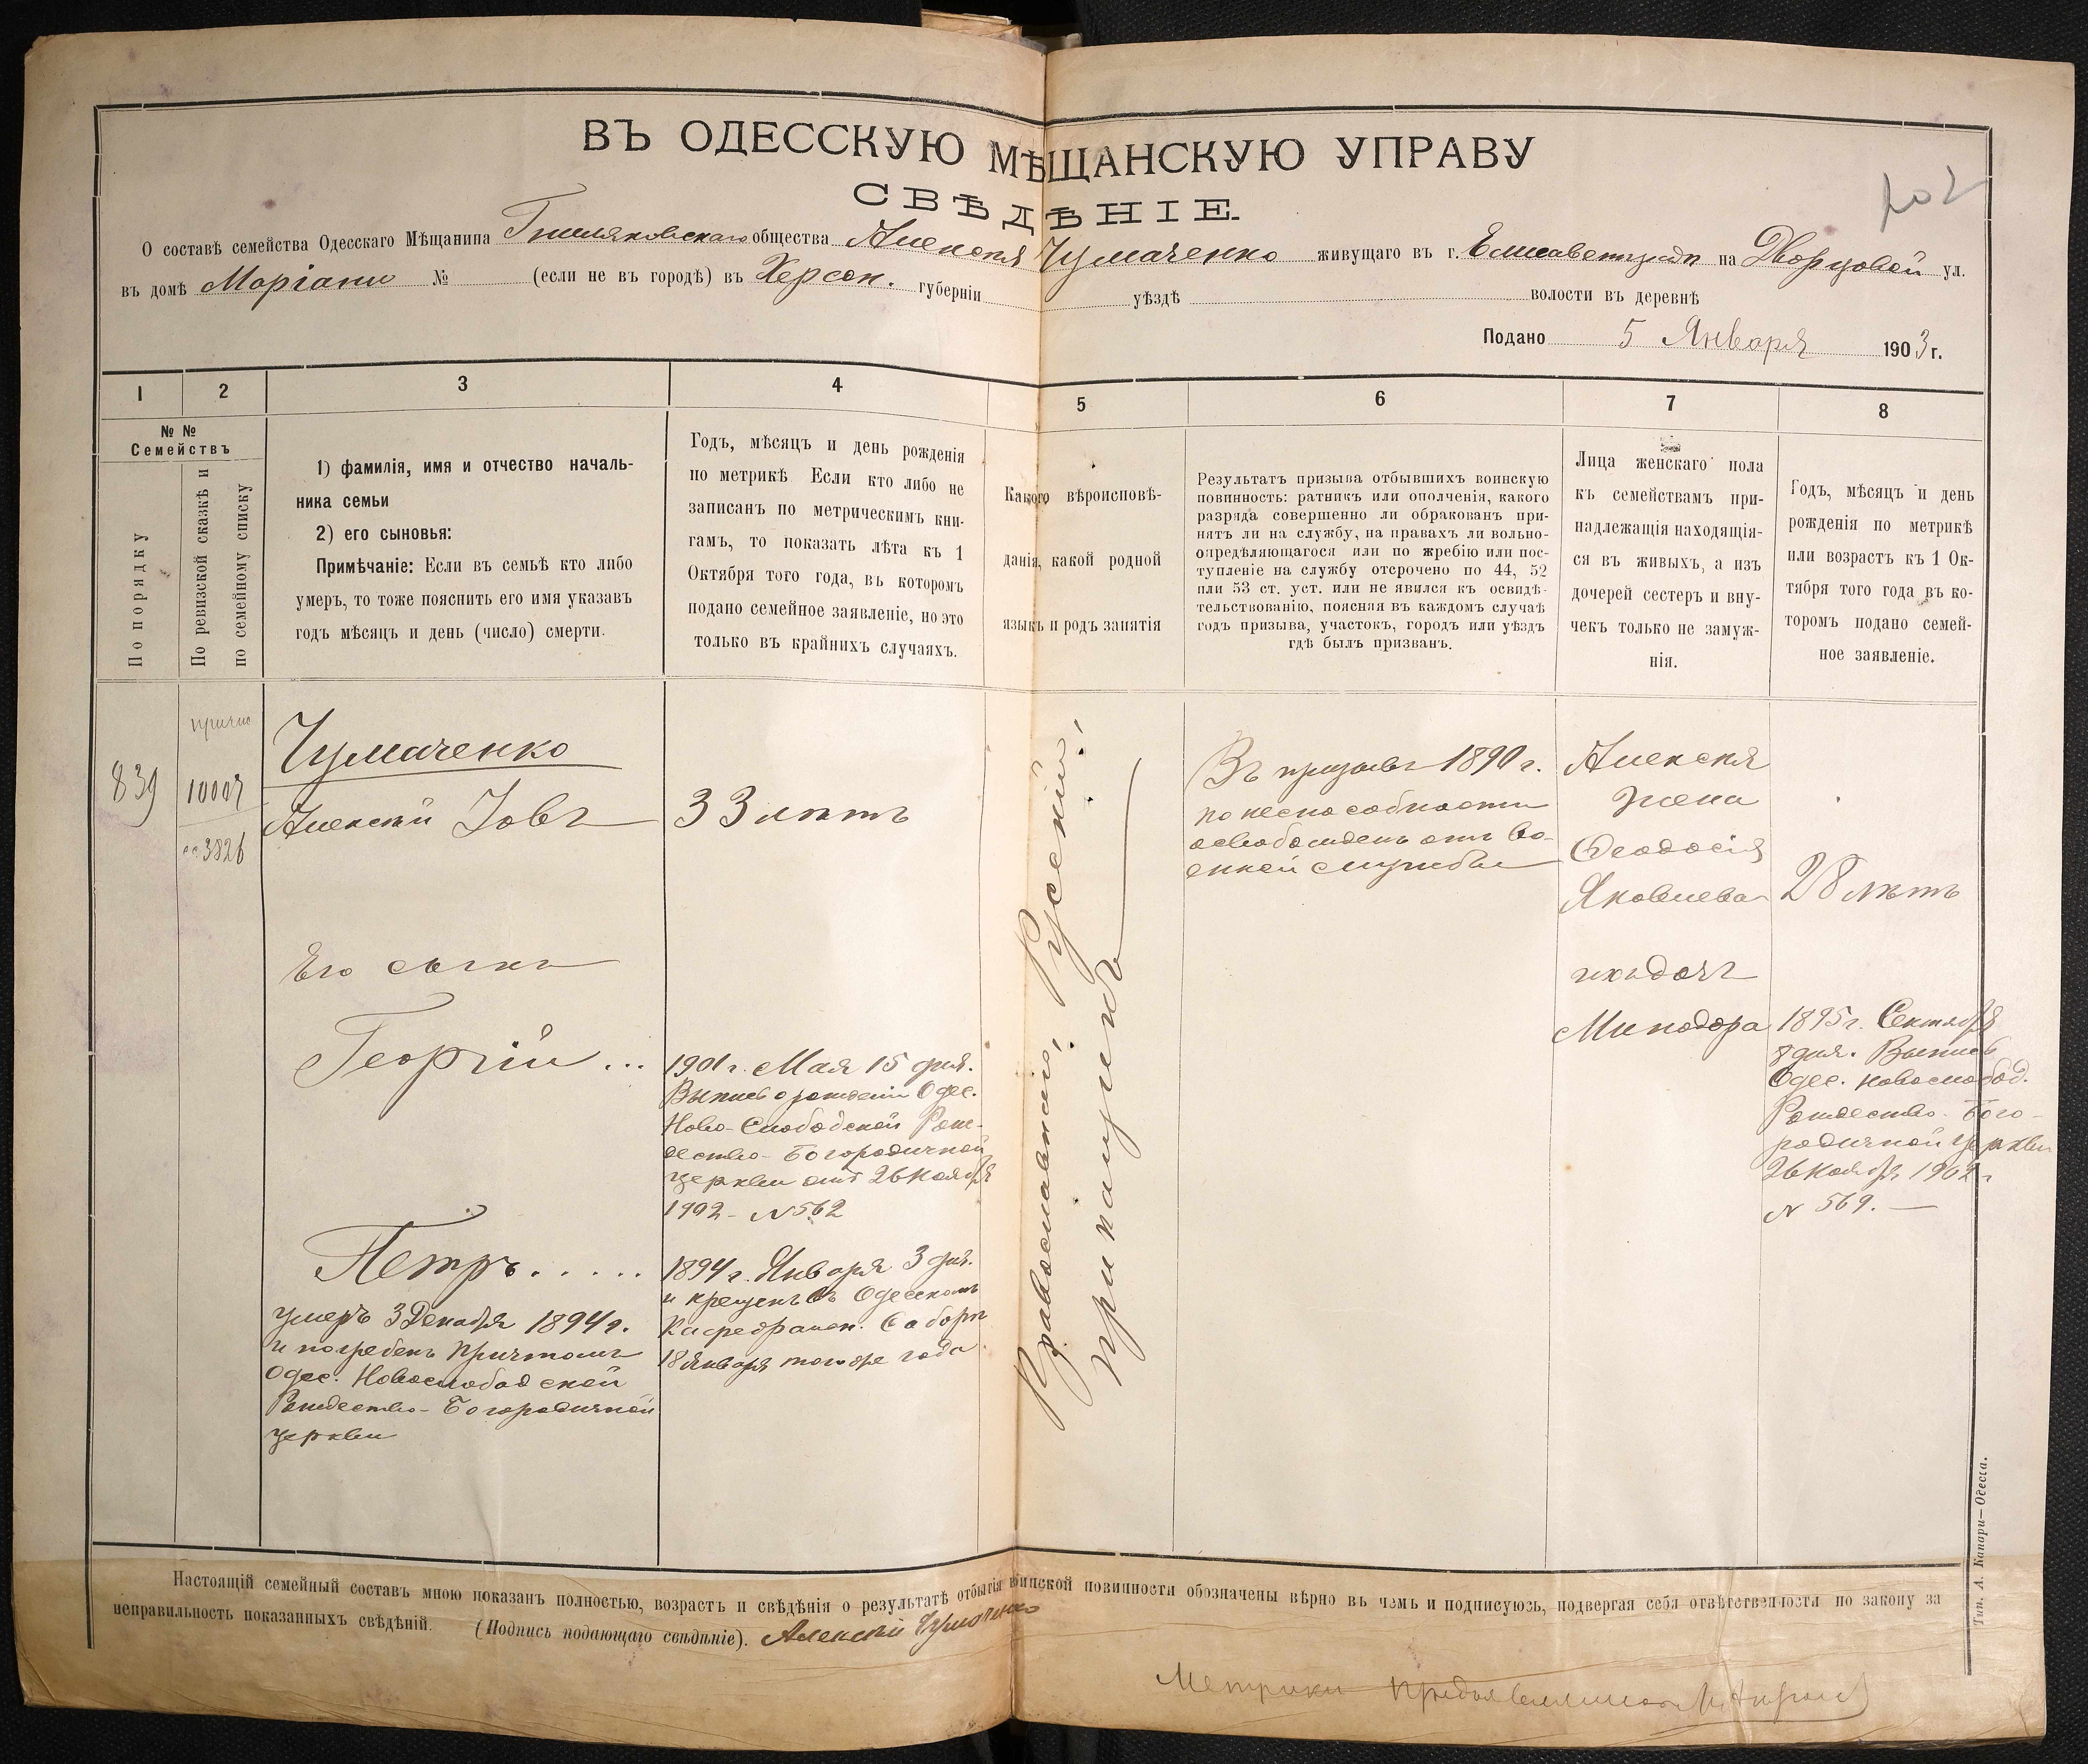 ВЪ ОДЕССКУЮ МѢЩАНСКУЮ УПРАВУ
СВѢДѢНІЕ.
О составѣ семейства Одесскаго Мѣщанина Гниляковскаго общества Алексѣя Чумаченко живущаго въ г. Елисаветградѣ на Дворцовой ул.
въ домѣ Маріани № (если не въ городѣ) въ Херсон. губерніи уѣздѣ волости въ деревнѣ
Подано 5 Января 1903 г.
1
2
3
4
5
6
7
8
№ №
Семействъ
По порядку
По ревизской сказкѣ и
по семейному списку
1) фамилія, имя и отчество началь-
ника семьи
2) его сыновья:
Примѣчаніе: Если въ семьѣ кто либо
умеръ, то тоже пояснить его имя указавъ
годъ мѣсяцъ и день (число) смерти.
Годъ, мѣсяцъ и день рожденія
по метрикѣ Если кто либо не
записанъ по метрическимъ кни-
гамъ, то показать лѣта къ 1
Октября того года, въ которомъ
подано семейное заявленіе, но это
только въ крайнихъ случаяхъ.
Какого вѣроисповѣ-
данія, какой родной
языкъ и родъ занятія
Результатъ призыва отбывшихъ воинскую
повинность: ратникъ или ополченія, какого
разряда совершенно ли обракованъ при-
нятъ ли на службу, на правахъ ли вольно-
опредѣляющагося или по жребію или пос-
тупленіе на службу отсрочено по 44, 52
или 53 ст. уст. или не явился къ освидѣ-
тельствованію, поясняя въ каждомъ случаѣ
годъ призыва, участокъ, городъ или уѣздъ
гдѣ былъ призванъ.
Лица женскаго пола
къ семействамъ при-
надлежащія находящія-
ся въ живыхъ, а изъ
дочерей сестеръ и вну-
чекъ только не замуж-
нія.
Годъ, мѣсяцъ и день
рожденія по метрикѣ
или возрастъ къ 1 Ок-
тября того года въ ко-
торомъ подано семей-
ное заявленіе.
839
причис
3826
Чумаченко
Алексѣй Іовъ
33 лѣтъ
Его сынъ
Георгій ...
1901 г. Мая 15 дня.
Выпись о рожденіи Одес.
Ново-Слободской Рож-
дество-Богородичной
церкви отъ 26 Ноября
1902 - N 562
Петръ.....
умеръ 3 Декабря 1894 г.
и погребенъ Причтомъ
Одес. Новослободской
Рождество-Богородичной
церкви
1894 г. Января 3 дня.
и крещенъ въ Одесскомъ
Кафедральн. Соборѣ
18 Января того же года
Православный, Русскій,
прикащикъ
Въ призывъ 1890 г.
по неспособности
освобожденъ отъ во-
енной службы
Алексѣя
жена
Феодосія
Яковлева
28 лѣтъ
ихъ дочь
Минодора
1895 г. Сентября
8 дня. Выпись
Одес. Новослобод.
Рождество-Бого-
родичной церкви
26 Ноября 1902 г
N 569. —
Настоящій семейный составъ мною показанъ полностью, возрастъ и свѣдѣнія о результатѣ отбытія воинской повинности обозначены вѣрно въ чемъ и подписуюсь, подвергая себя отвѣтственности по закону за
неправильность показанныхъ свѣдѣній. (Подпись подающаго свѣдѣніе). Алексѣй Чумаченко
Метрики
Тип. А. Капари—Одесса.